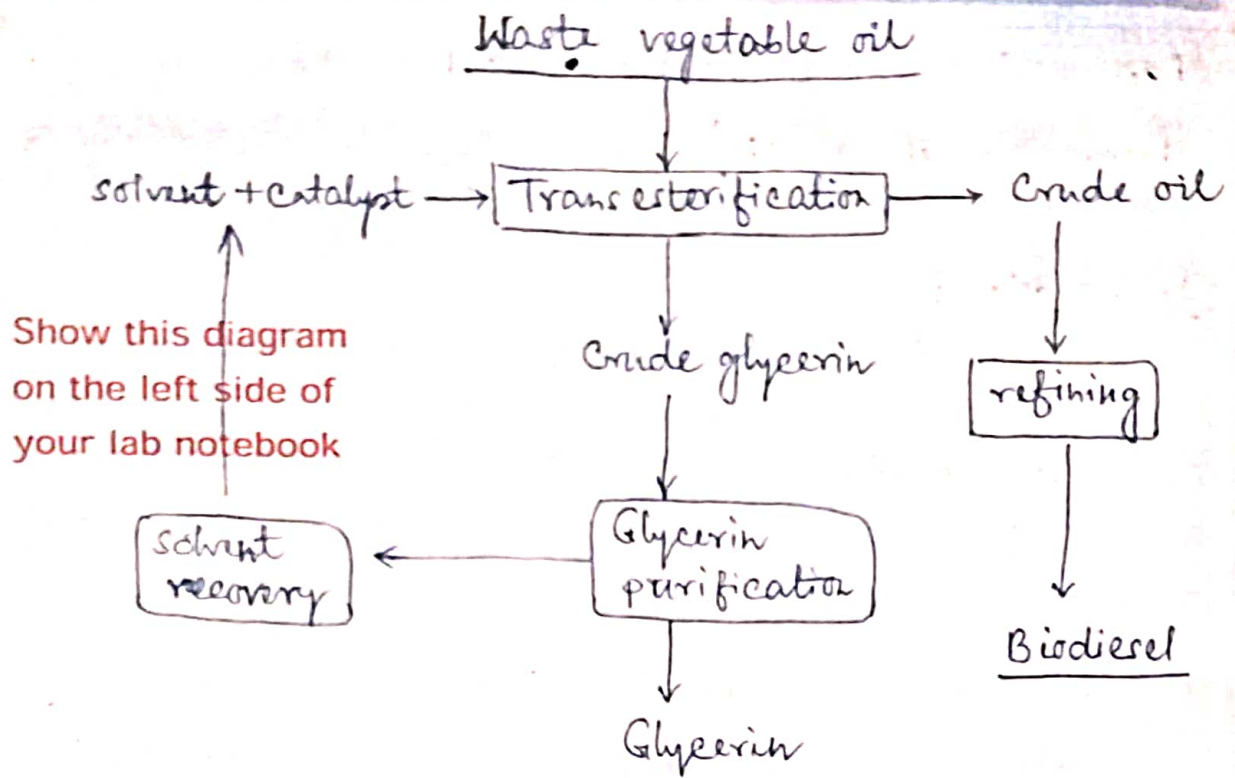 Waste vegetable oil
solvent + catalyst
Transesterification
Crude oil
Show this diagram
on the left side of
your lab notebook
Crude glycerin
refining
Solvent
recovery
Glycerin
purification
Biodiesel
Glycerin